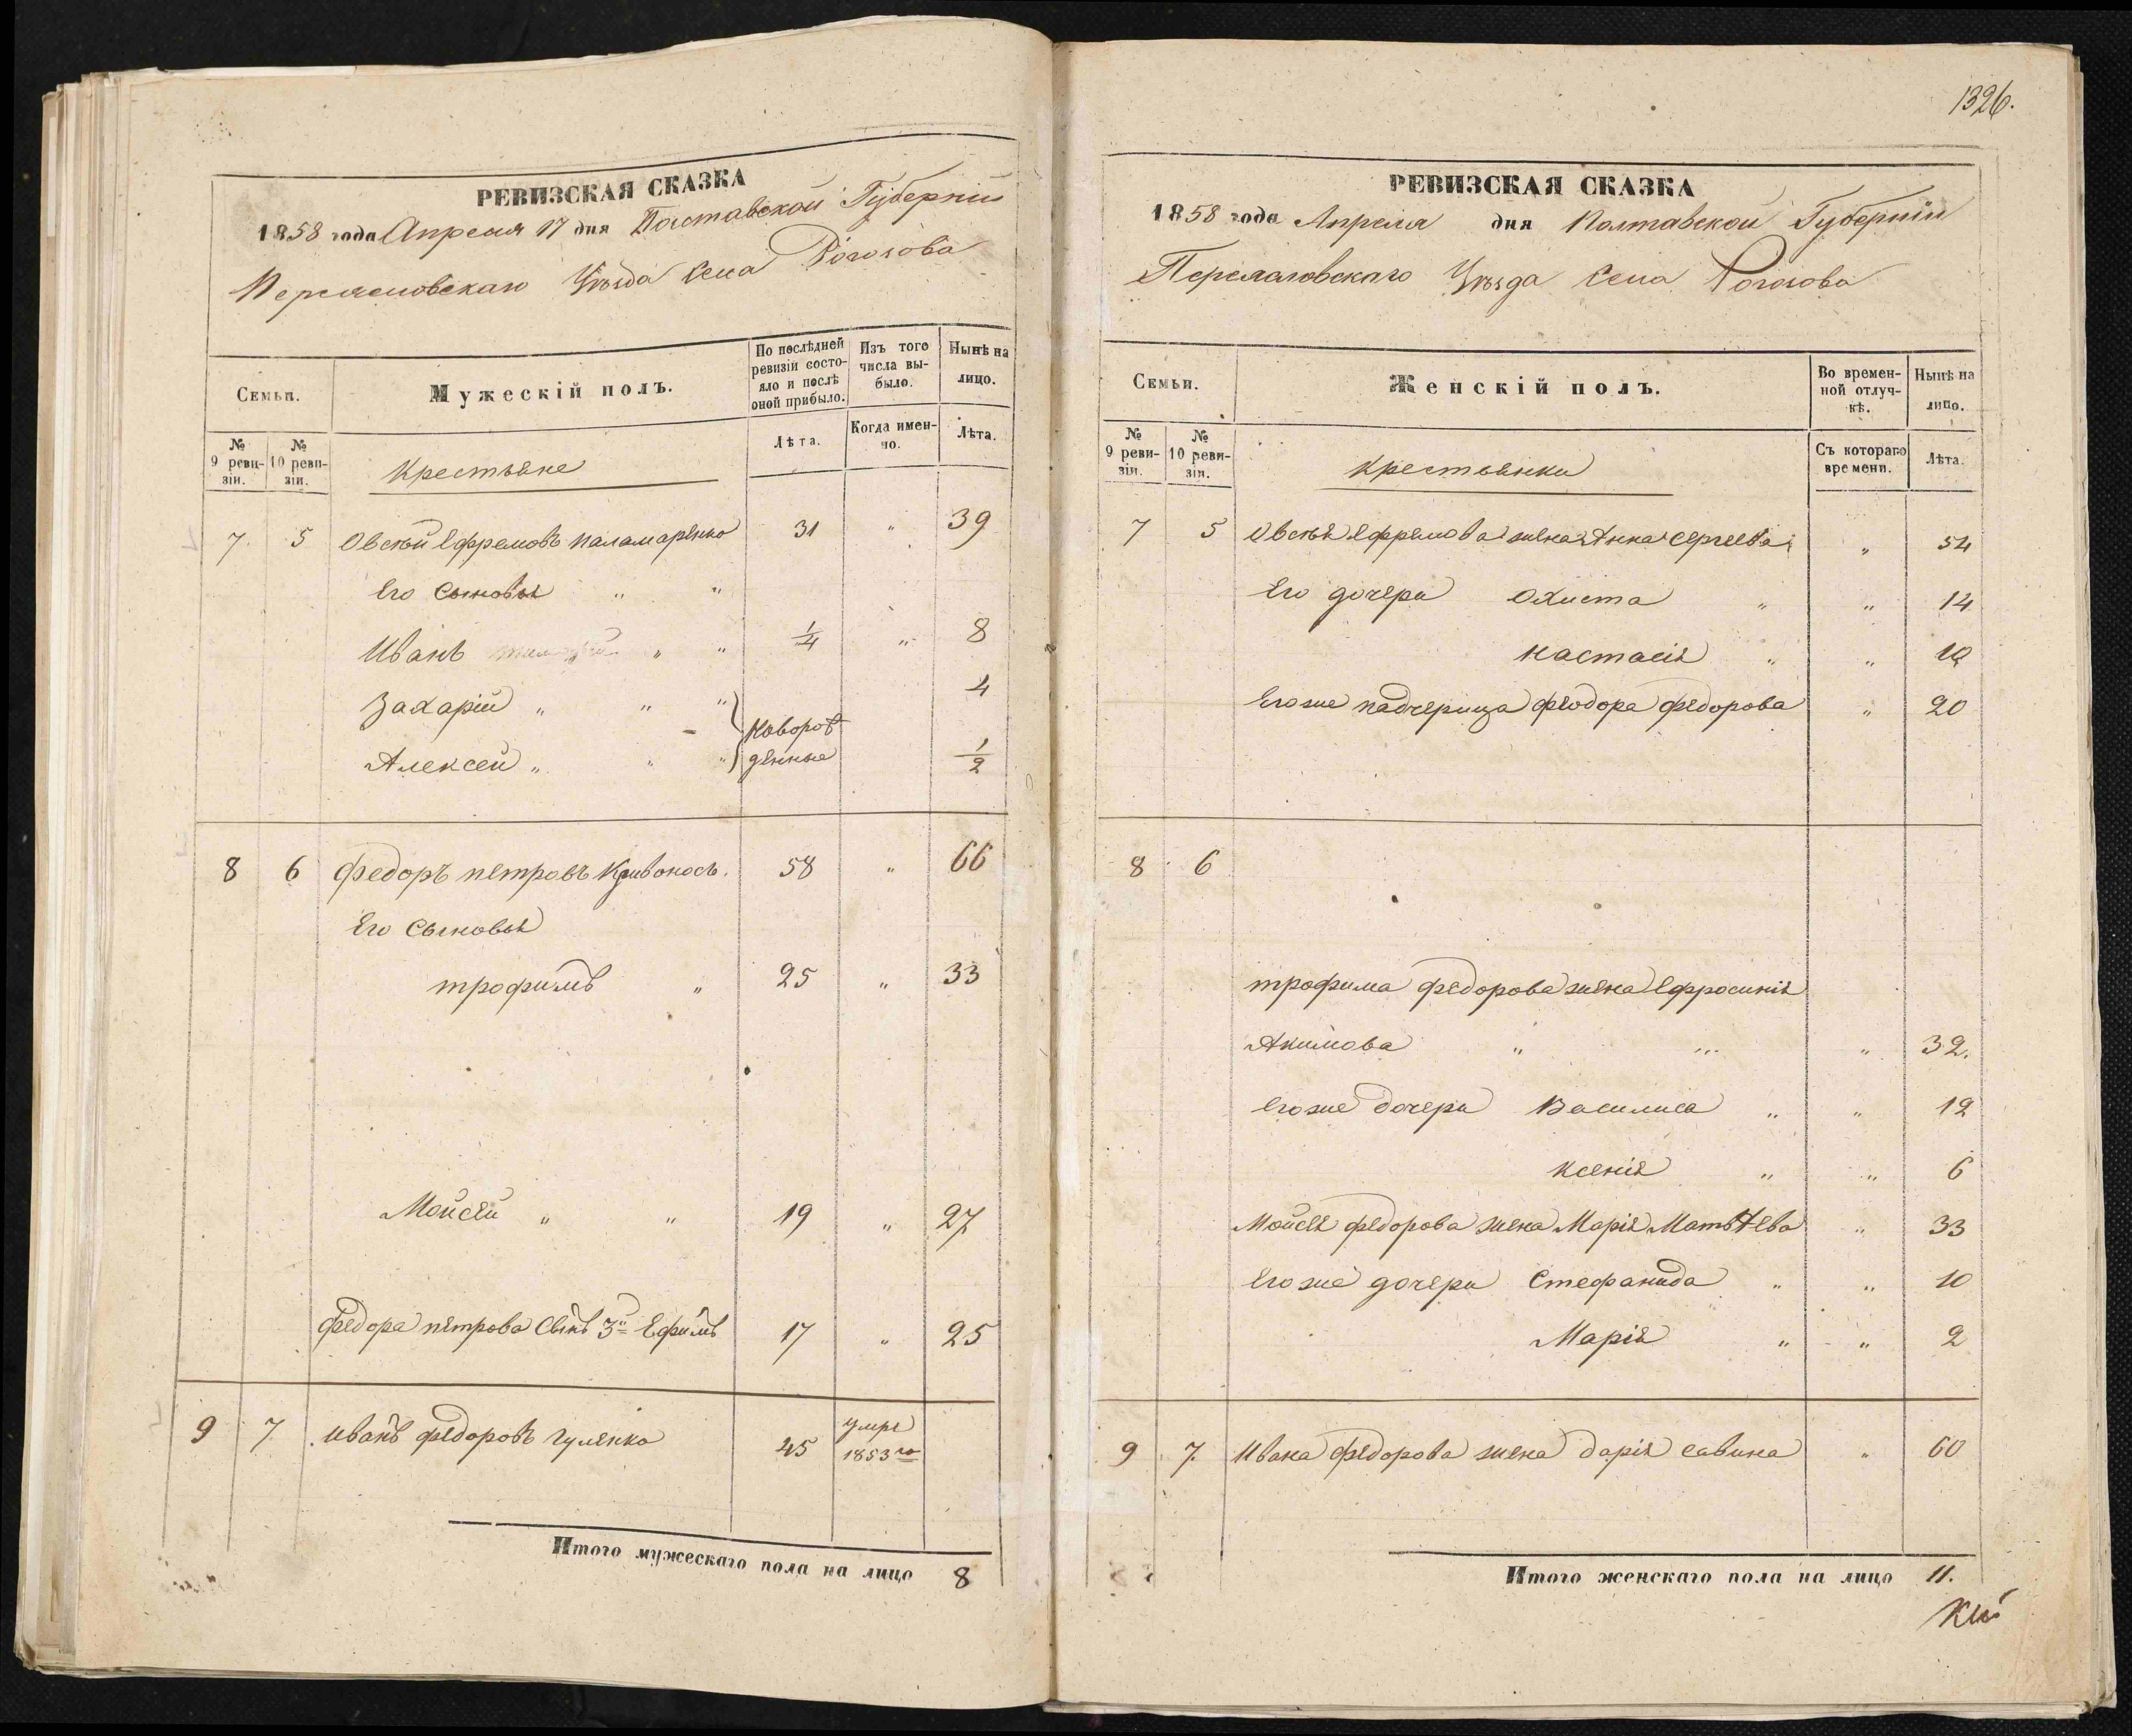 РЕВИЗСКАЯ СКАЗКА
1858 года Апреля 17 дня Полтавской Губерніи
Переяславскаго Уѣзда Села Рогозова
Семьи.
Мужескій полъ.
По послѣдней ревизіи состояло и послѣ оной прибыло.
Изъ того числа выбыло.
Нынѣ на лицо.
№ 9 ревизіи.
№ 10 ревизіи.
Крестьяне
Лѣта.
Когда именно.
Лѣта.
7. 5 Овсѣй Ефремовъ Паламаренко 31 " 39
Его Сыновья " "
Иванъ " " 1/4 " 8
Захарій " " " 4
Алексей " " " Новорожденные 1/2
8 6 Федоръ петровъ Кривоносъ. 58 " 66
Его Сыновья
трофимъ " 25 " 33
Мойсей " " 19 " 27
Федора петрова Сынъ 3й Ефимъ 17 " 25
9 7 Иванъ Федоровъ Гуленко 45 умре 1853го
Итого мужескаго пола на лицо 8
1326.
РЕВИЗСКАЯ СКАЗКА
1858 года Апреля дня Полтавской Губерніи
Переяславскаго Уѣзда Села Рогозова
Семьи.
Женскій полъ.
Во временной отлучкѣ.
Нынѣ на лицо.
№ 9 ревизіи.
№ 10 ревизіи.
Крестьянки
Съ котораго времени.
Лѣта.
7 5 Овсѣя Ефремова жена Анна Сергеева " 54
Его дочери Охиста " " 14
Настасія " " 10
Егоже падчерица Феодора Федорова " 20
8 6
трофима Федорова жена Ефросинія
Акимова " ... " 32.
Егоже дочери Василиса " " 12
Ксенія " " 6
Мойсея Федорова жена Марія Матвѣева " 33
Егоже дочери Стефанида " " 10
Марія " " 2
9 7. Ивана Федорова жена Дарія Савина " 60
Итого женскаго пола на лицо 11.